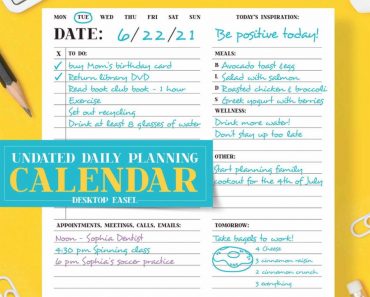 MON TUE WED THU FRI SAT SUN
DATE: 6/22/21
X TO DO:
✓ buy Mom's birthday card
✓ Return library DVD
Read book club book - 1 hour
Exercise
Set out recycling
Drink at least 8 glasses of water
UNDATED DAILY PLANNING
CALENDAR
DESKTOP EASEL
APPOINTMENTS, MEETINGS, CALLS, EMAILS:
Noon - Sophia Dentist
4:30 pm Spinning class
6 pm Sophia's soccer practice
TODAY'S INSPIRATION:
Be positive today!
MEALS:
B Avocado toast & egg
L Salad with salmon
D Roasted chicken & broccoli
S Greek yogurt with berries
WELLNESS:
Drink more water!
Don't stay up too late
OTHER:
Start planning family
cookout for the 4th of July
TOMORROW:
Take bagels to work!
4 Cheese
3 cinnamon raisin
2 cinnamon crunch
3 everything